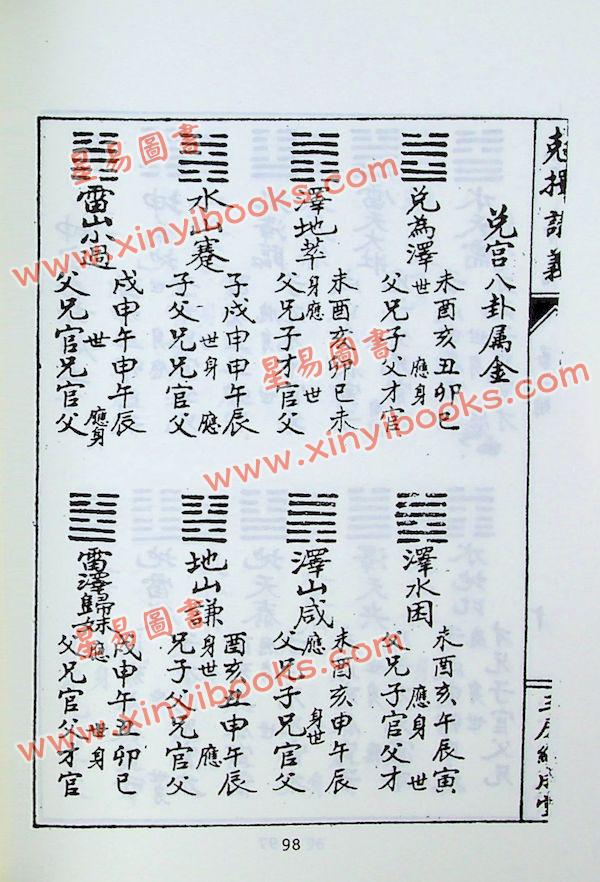 克擇講義
兌宮八卦属金
兌為澤
未酉亥丑卯巳
世 應身
父兄子父才官
澤地萃
未酉亥卯巳未
身應 世
父兄子才官父
水山蹇
子戌申申午辰
世身 應
子父兄兄官父
雷山小過
戌申午申午辰
世 應身
父兄官兄官父
澤水困
未酉亥午辰寅
應身 世
父兄子官父才
澤山咸
未酉亥申午辰
應 身世
父兄子兄官父
地山謙
酉亥丑申午辰
身世 應
兄子父兄官父
雷澤歸妹
戌申午丑卯巳
應 世身
父兄官父才官
98
星易圖書
www.xinyibooks.com
星易圖書
www.xinyibooks.com
星易圖書
www.xinyibooks.com